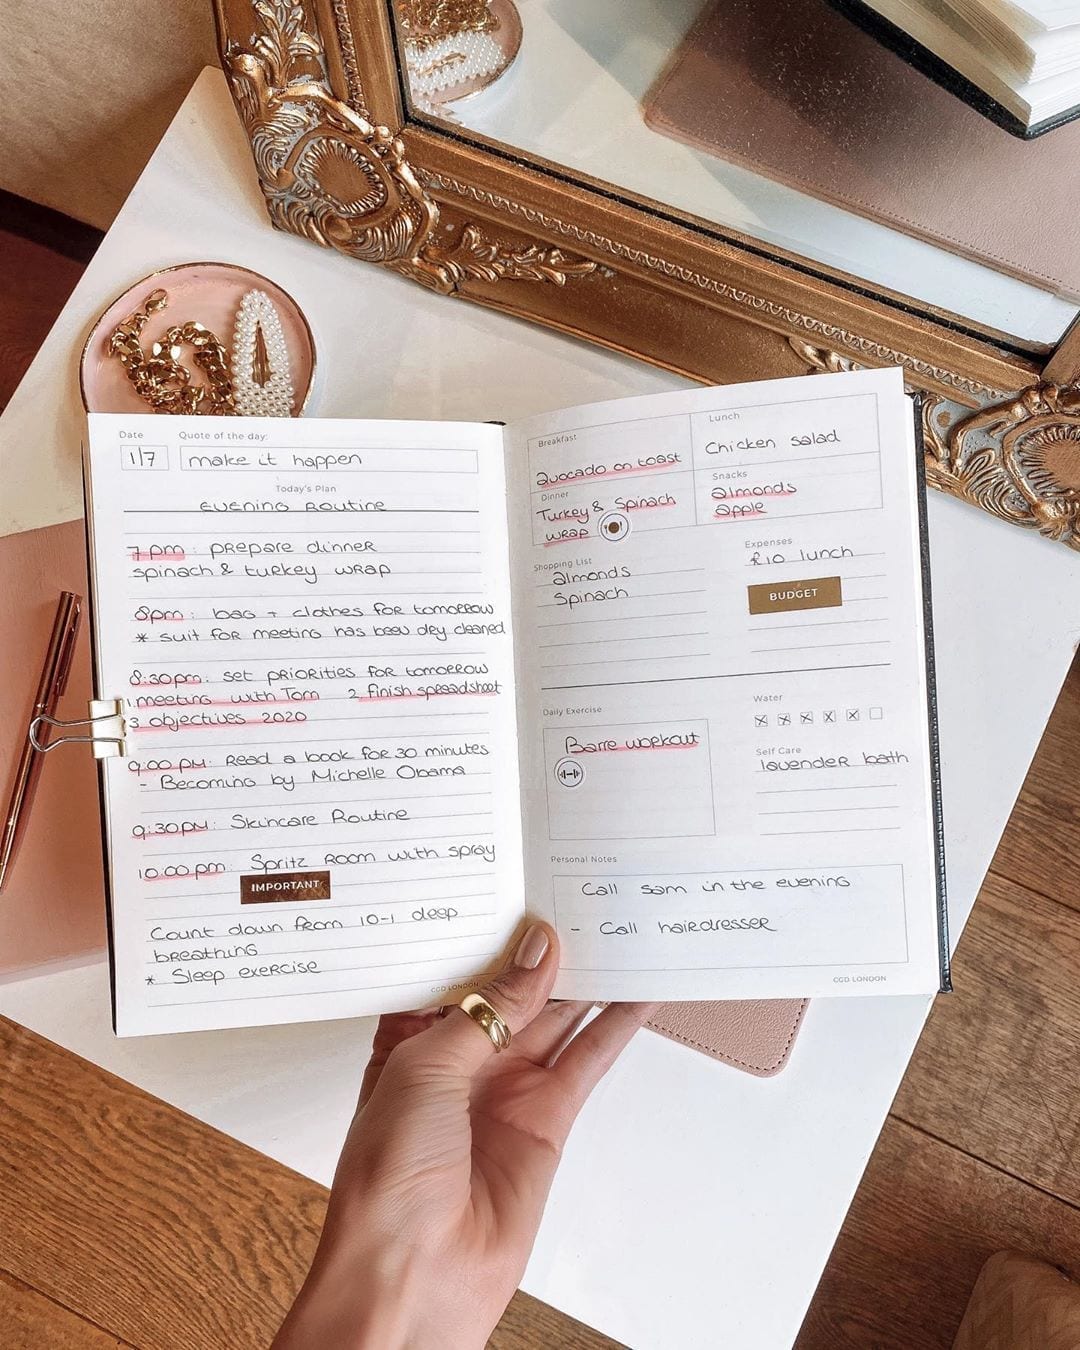 Date
Quote of the day:
1/7
make it happen
Today's Plan
evening Routine
7pm: prepare dinner
spinach & turkey wrap
8pm: bag + clothes for tomorrow
* suit for meeting has been dry cleaned
8:30pm: set priorities for tomorrow
1. meeting with Tom 2. finish spreadsheet
3 objectives 2020
9:00 PM: Read a book for 30 minutes
- Becoming by Michelle Obama
9:30PM: Skincare Routine
10:00pm: Spritz Room with spray
IMPORTANT
Count down from 10-1 deep
breathing
* Sleep exercise
CGD LONDON
Breakfast
avocado on toast
Lunch
Chicken salad
Dinner
Turkey & Spinach
wrap
Snacks
almonds
apple
Shopping List
almonds
Spinach
Expenses
£10 lunch
BUDGET
Daily Exercise
Barre workout
Water
Self Care
lavender bath
Personal Notes
Call sam in the evening
- Call hairdresser
CGD LONDON